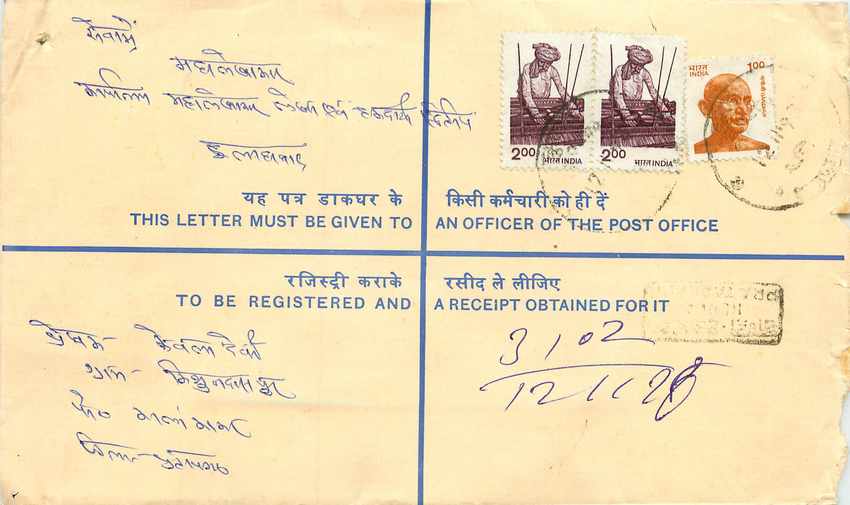 सेवामें
महालेखाकार
कार्यालय महालेखाकार लेखा एवं हकदारी द्वितीय
इलाहाबाद
2.00 भारत INDIA
2.00 भारत INDIA
भारत INDIA 1.00
यह पत्र डाकघर के किसी कर्मचारी को ही दें
THIS LETTER MUST BE GIVEN TO AN OFFICER OF THE POST OFFICE
रजिस्ट्री कराके रसीद ले लीजिए
TO BE REGISTERED AND A RECEIPT OBTAINED FOR IT
प्रेषक- केवला देवी
ग्राम-
पो०
जिला- प्रतापगढ
3102